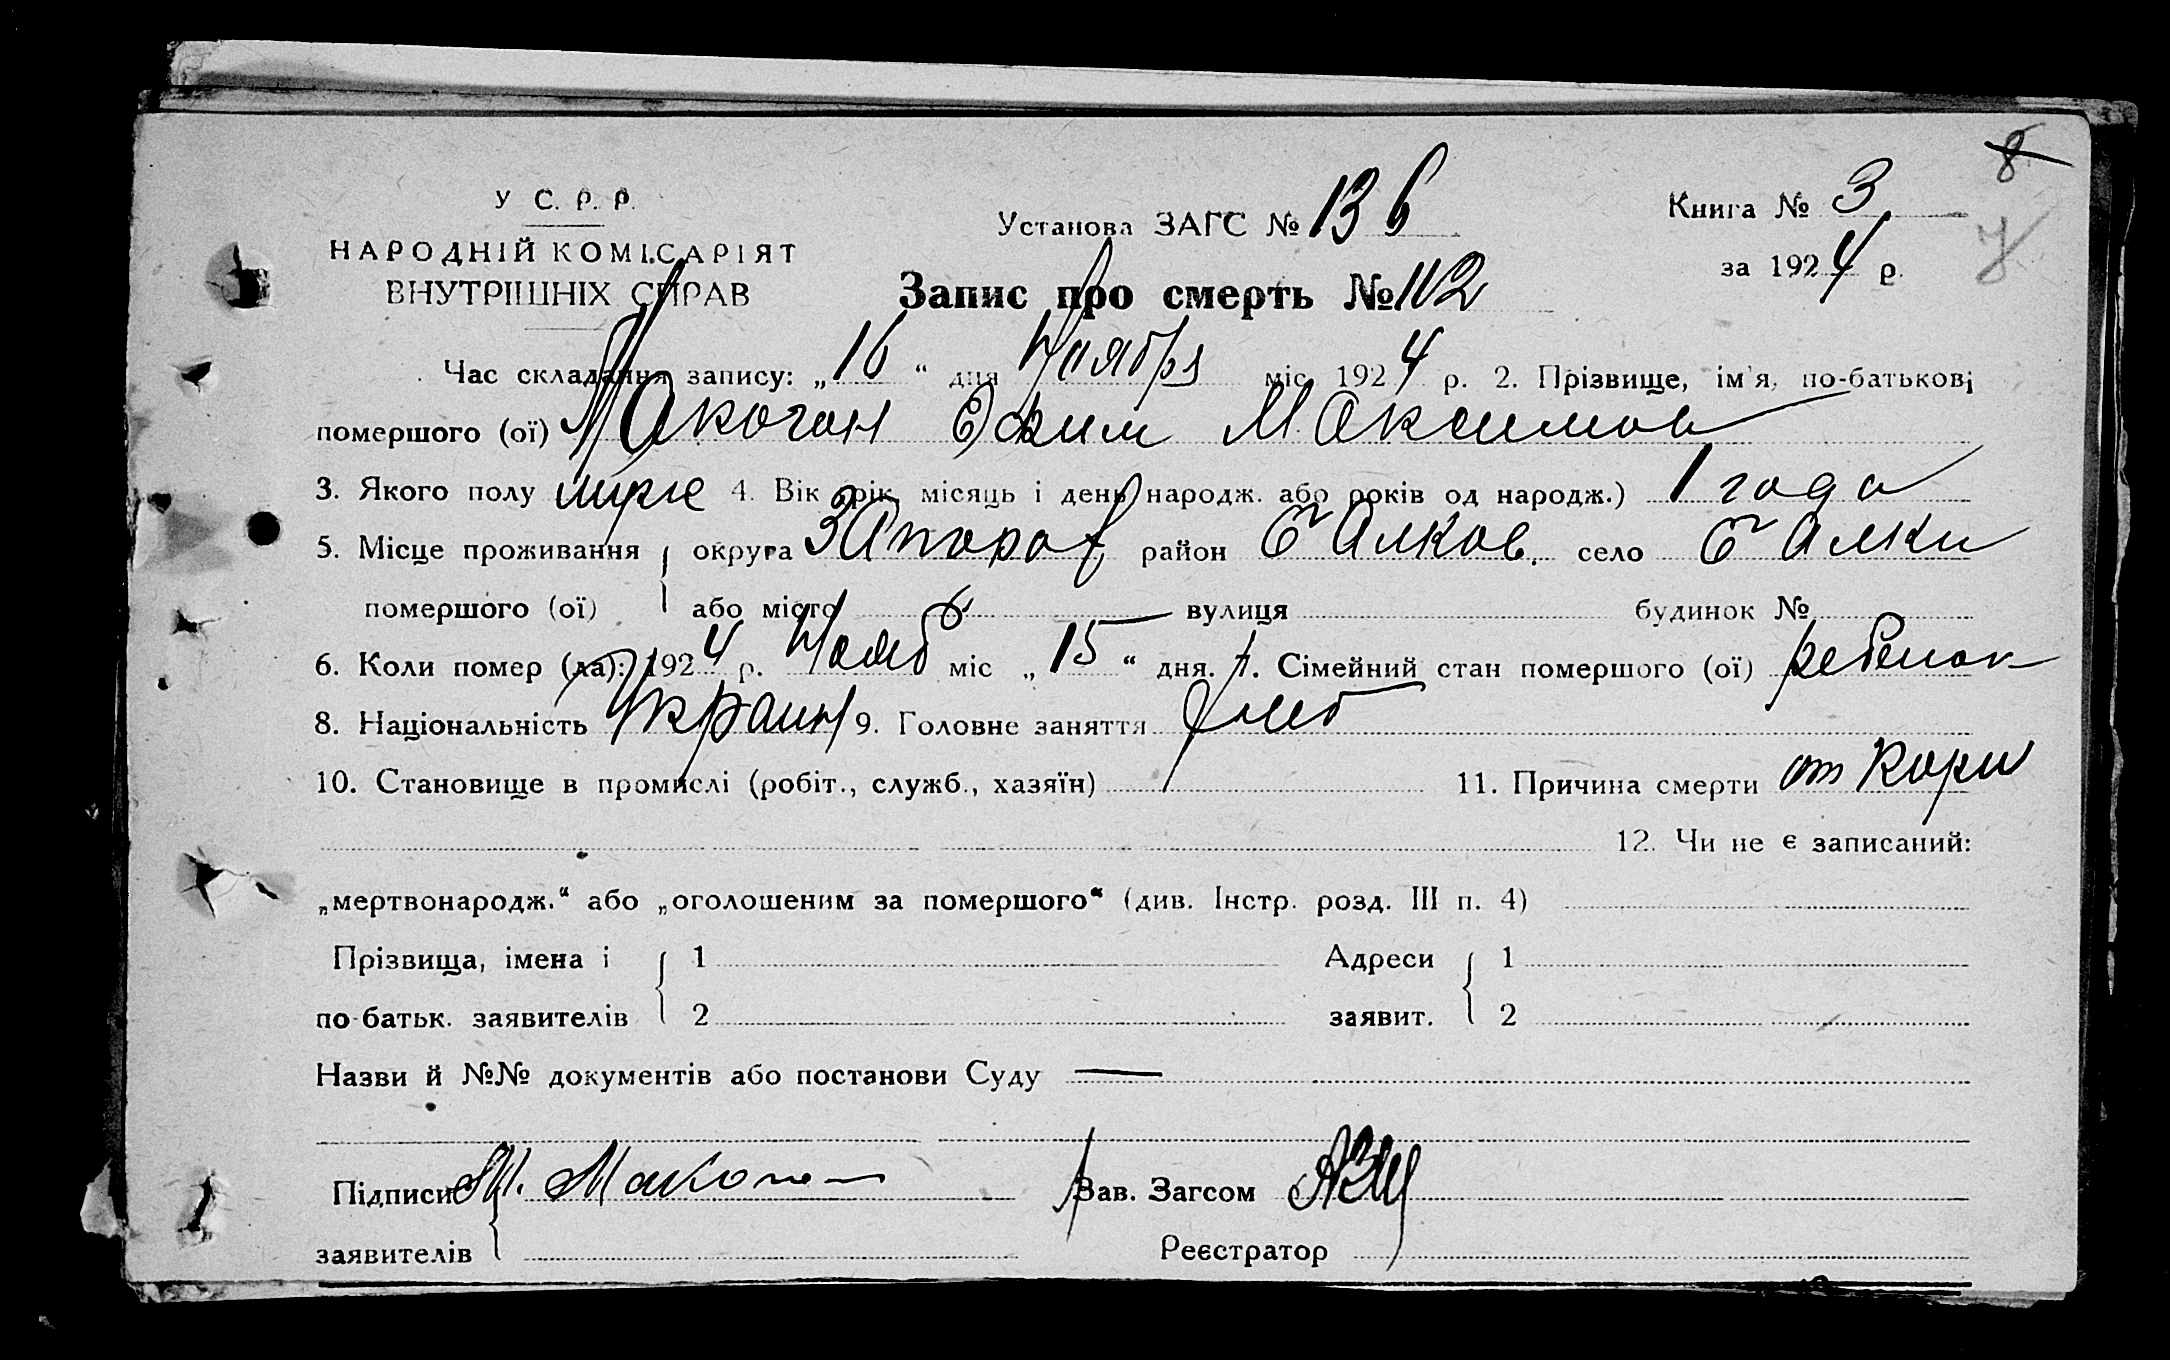 8
7
У С. Р. Р.
НАРОДНІЙ КОМІСАРІЯТ
ВНУТРІШНІХ СПРАВ
Установа ЗАГС № 136
Книга № 3
за 1924 р.
Запис про смерть № 112
Час складання запису: „16“ дня Ноября міс. 1924 р. 2. Прізвище, ім'я, по-батькові
помершого (ої) Макогон Ефим Максимов
3. Якого полу муже 4. Вік (рік, місяць і день народж. або років од народж.) 1 года
5. Місце проживання округа Запорож район Балков. село Балки
помершого (ої) або місто вулиця будинок №
6. Коли помер (ла): 1924 р. Нояб міс „15“ дня. 7. Сімейний стан помершого (ої) ребенок
8. Національність Украин 9. Головне заняття
10. Становище в промислі (робіт., служб., хазяїн) 11. Причина смерти от кори
12. Чи не є записаний:
„мертвонародж.“ або „оголошеним за помершого“ (див. Інстр. розд. III п. 4)
Прізвища, імена і 1 Адреси 1
по-батьк. заявителів 2 заявит. 2
Назви й №№ документів або постанови Суду —
Підписи М. Макогон Зав. Загсом
заявителів Реєстратор